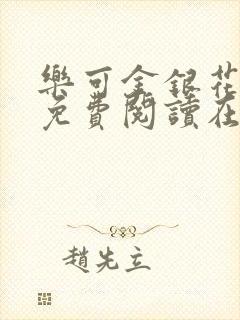 樂可金銀花
免費閱讀在
趙先立